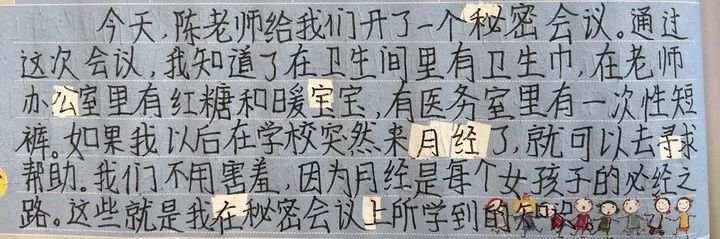 今天,陈老师给我们开了一个秘密会议。通过
这次会议,我知道了在卫生间里有卫生巾,在老师
办公室里有红糖和暖宝宝,有医务室里有一次性短
裤。如果我以后在学校突然来月经了,就可以去寻求
帮助。我们不用害羞,因为月经是每个女孩子的必经之
路。这些就是我在秘密会议上所学到的知识